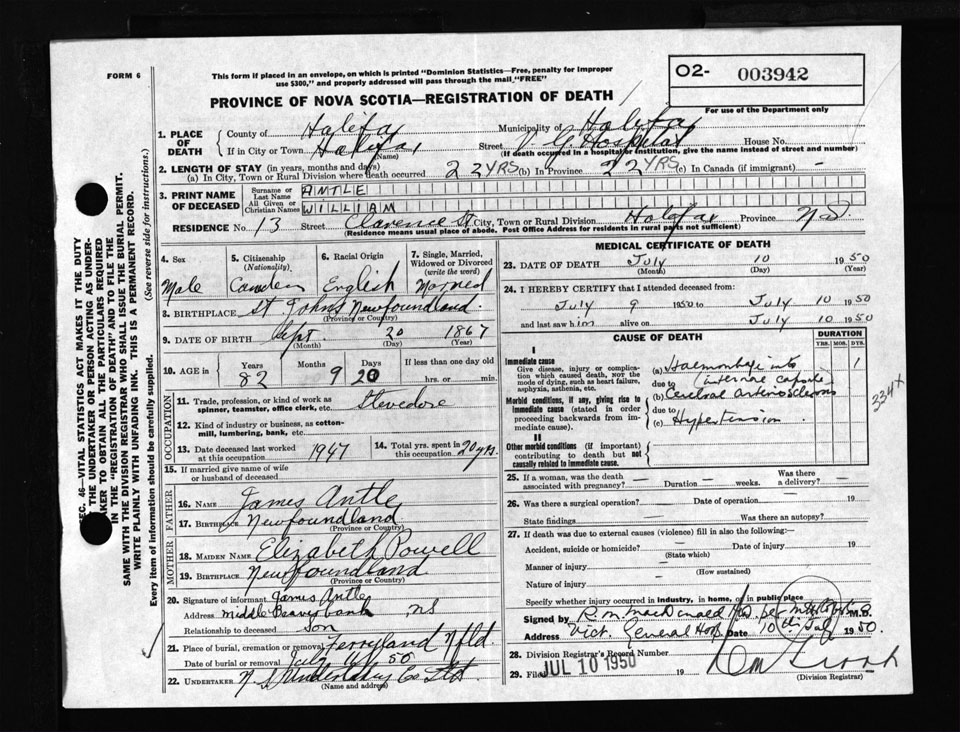 FORM 6
This form if placed in an envelope, on which is printed "Dominion Statistics—Free, penalty for improper
use $300," and properly addressed will pass through the mail "FREE"
O2- 003942
For use of the Department only
PROVINCE OF NOVA SCOTIA—REGISTRATION OF DEATH
1. PLACE OF DEATH
County of Halifax Municipality of Halifax
If in City or Town Halifax (Name) Street V. G. Hospital House No.
(If death occurred in a hospital or institution, give the name instead of street and number)
2. LENGTH OF STAY (in years, months and days)
(a) In City, Town or Rural Division where death occurred 22 YRS (b) In Province 22 YRS (c) In Canada (if immigrant) -
3. PRINT NAME OF DECEASED
Surname or Last Name ANTLE
All Given or Christian Names WILLIAM
RESIDENCE No. 13 Street Clarence St City, Town or Rural Division Halifax Province N.S.
(Residence means usual place of abode. Post Office Address for residents in rural parts not sufficient)
4. Sex Male
5. Citizenship (Nationality)
6. Racial Origin English
7. Single, Married, Widowed or Divorced (write the word) Married
8. BIRTHPLACE St. Johns Newfoundland
(Province or Country)
9. DATE OF BIRTH Sept (Month) 20 (Day) 1867 (Year)
10. AGE in Years 82 Months 9 Days 20 If less than one day old
hrs. or min.
OCCUPATION
11. Trade, profession, or kind of work as
spinner, teamster, office clerk, etc. Stevedore
12. Kind of industry or business, as cotton-
mill, lumbering, bank, etc.
13. Date deceased last worked at this occupation 1947
14. Total yrs. spent in this occupation 20 yrs.
15. If married give name of wife
or husband of deceased
FATHER
16. NAME James Antle
17. BIRTHPLACE Newfoundland
(Province or Country)
MOTHER
18. MAIDEN NAME Elizabeth Powell
19. BIRTHPLACE Newfoundland
(Province or Country)
20. Signature of informant James Antle
Address Middle Beaverbank NS
Relationship to deceased Son
21. Place of burial, cremation or removal Ferryland Nfld.
Date of burial or removal July 50
22. UNDERTAKER N. S. Undertaking Co Ltd
(Name and address)
MEDICAL CERTIFICATE OF DEATH
23. DATE OF DEATH July (Month) 10 (Day) 1950 (Year)
24. I HEREBY CERTIFY that I attended deceased from:
July 9 1950 to July 10 1950
and last saw him alive on July 10 1950
CAUSE OF DEATH
DURATION
YRS. MOS. DYS.
I
Immediate cause
Give disease, injury or complica-
tion which caused death, NOT the
mode of dying, such as heart failure,
asphyxia, asthenia, etc.
(a) Haemorrhage into 1
due to (internal capsule)
Morbid conditions, if any, giving rise to
immediate cause (stated in order
proceeding backwards from im-
mediate cause).
(b) Cerebral arteriosclerosis
due to
(c) Hypertension
334 x
II
Other morbid conditions (if important)
contributing to death but not
causally related to immediate cause.
25. If a woman, was the death associated with pregnancy? — Duration — weeks. Was there a delivery? —
26. Was there a surgical operation? — Date of operation — 19
State findings Was there an autopsy?
27. If death was due to external causes (violence) fill in also the following:—
Accident, suicide or homicide? (State which) Date of injury 19
Manner of injury (How sustained)
Nature of injury
Specify whether injury occurred in industry, in home, or in public place
Signed by R M MacDonald M.D.
Address Vict. General Hosp. Date 10th July 1950.
28. Division Registrar's Record Number
29. Filed JUL 10 1950 19
(Division Registrar)
SEC. 46—VITAL STATISTICS ACT MAKES IT THE DUTY
OF THE UNDERTAKER OR PERSON ACTING AS UNDER-
TAKER TO OBTAIN ALL THE PARTICULARS REQUIRED
IN THE "REGISTRATION OF DEATH" AND TO FILE THE
SAME WITH THE DIVISION REGISTRAR WHO SHALL ISSUE THE BURIAL PERMIT.
WRITE PLAINLY WITH UNFADING INK. THIS IS A PERMANENT RECORD.
Every item of information should be carefully supplied. (See reverse side for instructions.)